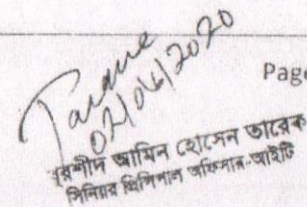 Page
Tareque
02/06/2020
রশীদ আমিন হোসেন তারেক
সিনিয়র প্রিন্সিপাল অফিসার-আইটি